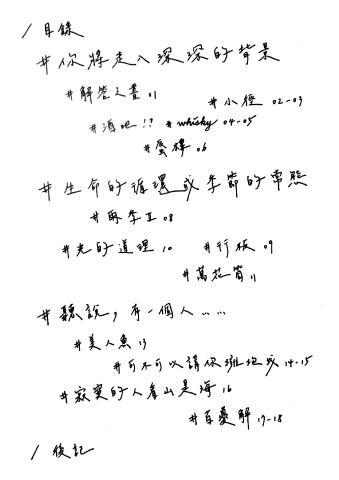 / 目錄
# 你將走入深深的背景
# 解答之書 01
# 小徑 02-03
# 酒吧!! # whisky 04-05
# 蜃樓 06
# 生命的循環或季節的常態
# 雨季工 08
# 光的道理 10 # 行板 09
# 萬花筒 11
# 聽說,有一個人……
# 美人魚 13
# 可不可以請你擁抱我 14-15
# 寂寞的人看山是海 16
# 百憂解 17-18
/ 後記